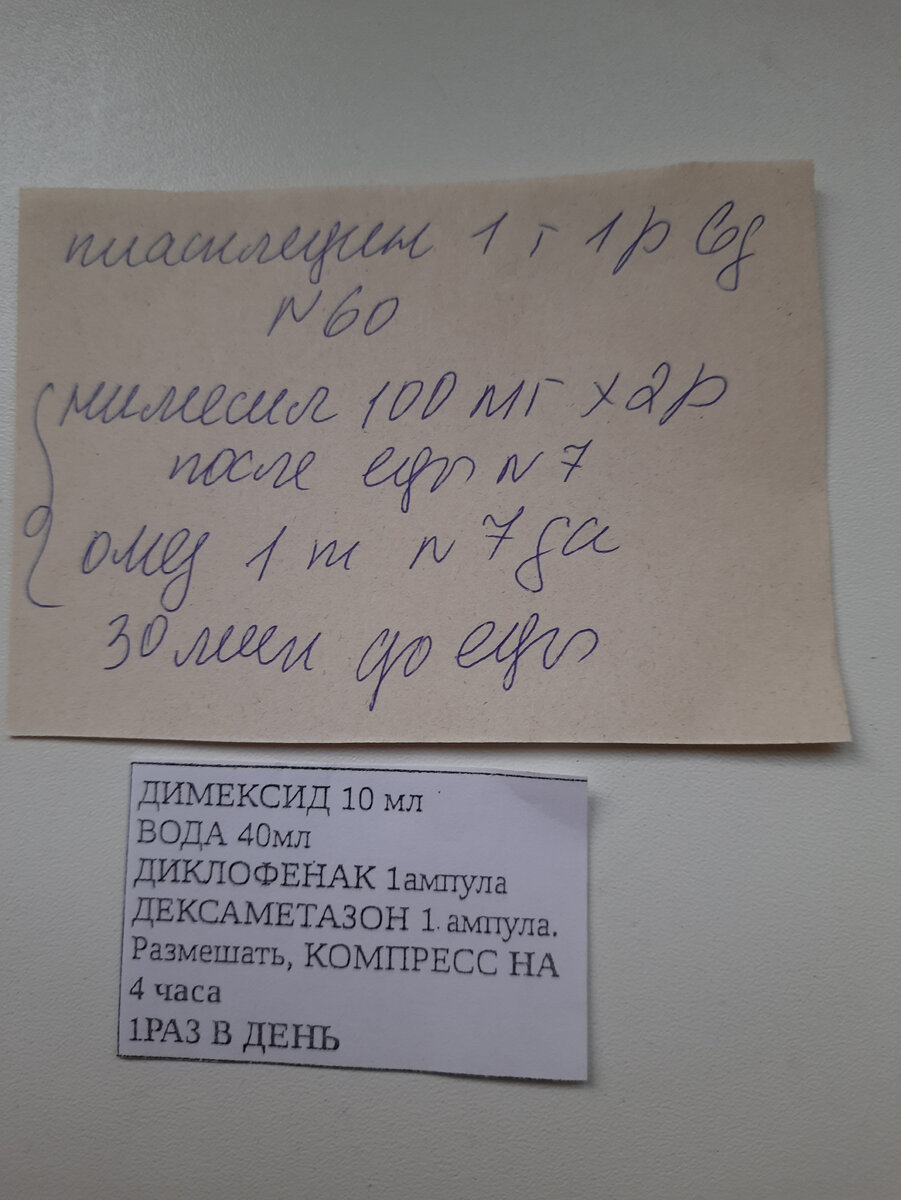 пиаскледин 1 т 1 р вд
N 60
нимесил 100 мг х 2 р
после еды N 7
омез 1 т N 7 да
30 мин до еды
ДИМЕКСИД 10 мл
ВОДА 40мл
ДИКЛОФЕНАК 1ампула
ДЕКСАМЕТАЗОН 1 ампула.
Размешать, КОМПРЕСС НА
4 часа
1РАЗ В ДЕНЬ